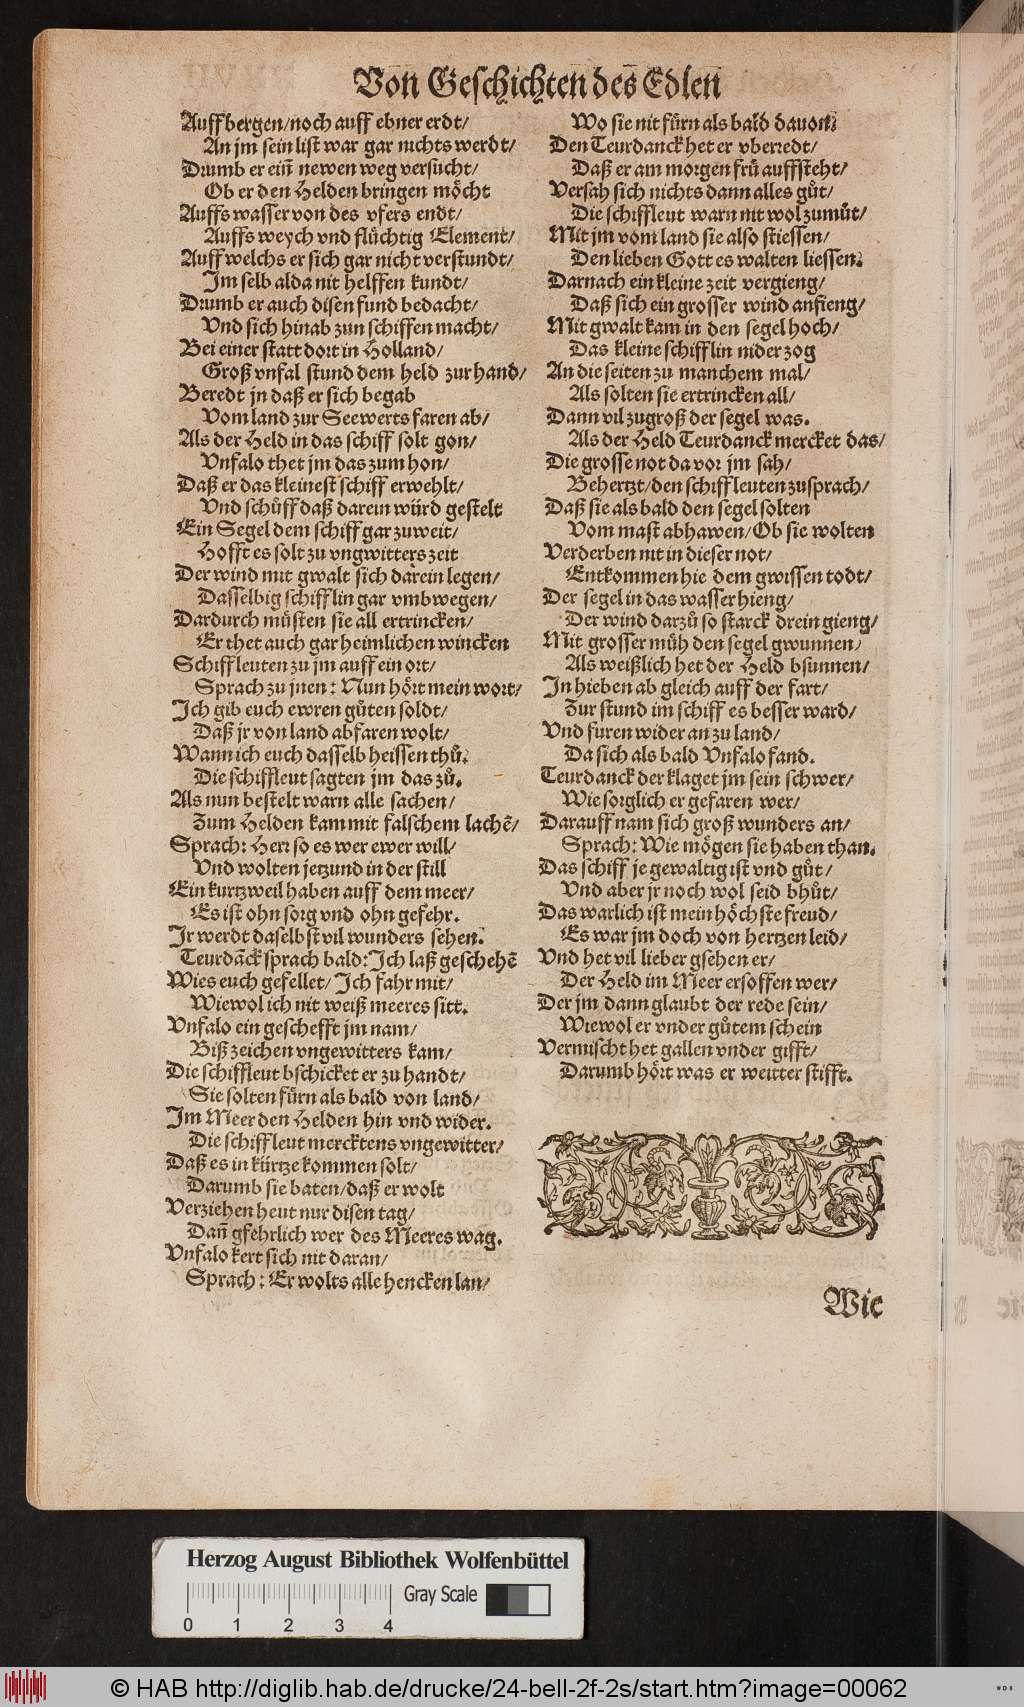 Von Geschichten des Edlen
Auff bergen/noch auff ebner erdt/
An jm sein list war gar nichts werdt/
Drumb er ein̄ newen weg versucht/
Ob er den Helden bringen moͤcht
Auffs wasser von des vfers endt/
Auffs weych vnd fluͤchtig Element/
Auff welchs er sich gar nicht verstundt/
Im selb alda nit helffen kundt/
Drumb er auch disen fund bedacht/
Vnd sich hinab zun schiffen macht/
Bei einer statt dort in Holland/
Groß vnfal stund dem held zur hand/
Beredt jn daß er sich begab
Vom land zur Seewerts faren ab/
Als der Held in das schiff solt gon/
Vnfalo thet jm das zum hon/
Daß er das kleinest schiff erwehlt/
Vnd schuͤff daß darein wuͤrd gestelt
Ein Segel dem schiff gar zuweit/
Hofft es solt zu vngwitters zeit
Der wind mit gwalt sich darein legen/
Dasselbig schifflin gar vmbwegen/
Dardurch muͤsten sie all ertrincken/
Er thet auch gar heimlichen wincken
Schiffleuten zu jm auff ein ort/
Sprach zu jnen: Nun hoͤrt mein wort/
Ich gib euch ewren guͦten soldt/
Daß jr von land abfaren wolt/
Wann ich euch dasselb heissen thuͦ.
Die schiffleut sagten jm das zuͦ.
Als nun bestelt warn alle sachen/
Zum Helden kam mit falschem lachē/
Sprach: Herr so es wer ewer will/
Vnd wolten jetzund in der still
Ein kurtzweil haben auff dem meer/
Es ist ohn sorg vnd ohn gefehr.
Ir werdt daselbst vil wunders sehen.
Teurdāck sprach bald: Ich laß geschehē
Wies euch gefellet/ Ich fahr mit/
Wiewol ich nit weiß meeres sitt.
Vnfalo ein geschefft jm nam/
Biß zeichen vngewitters kam/
Die schiffleut bschicket er zu handt/
Sie solten fuͤrn als bald von land/
Im Meer den Helden hin vnd wider.
Die schiffleut mercktens vngewitter/
Daß es in kuͤrtze kommen solt/
Darumb sie baten/daß er wolt
Verziehen heut nur disen tag/
Dan̄ gfehrlich wer des Meeres wag.
Vnfalo kert sich nit daran/
Sprach: Er wolts alle hencken lan/
Wo sie nit fuͤrn als bald dauon.
Den Teurdanck het er vberredt/
Daß er am morgen fruͤ auffsteht/
Versah sich nichts dann alles guͦt/
Die schiffleut warn nit wol zumuͦt/
Mit jm vom land sie also stiessen/
Den lieben Gott es walten liessen.
Darnach ein kleine zeit vergieng/
Daß sich ein grosser wind anfieng/
Mit gwalt kam in den segel hoch/
Das kleine schifflin nider zog
An die seiten zu manchem mal/
Als solten sie ertrincken all/
Dann vil zu groß der segel was.
Als der Held Teurdanck mercket das/
Die grosse not da vor jm sah/
Behertzt/den schiffleuten zusprach/
Daß sie als bald den segel solten
Vom mast abhawen/Ob sie wolten
Verderben nit in dieser not/
Entkommen hie dem gwissen todt/
Der segel in das wasser hieng/
Der wind darzuͦ so starck drein gieng/
Mit grosser muͤh den segel gwunnen/
Als weißlich het der Held bsunnen/
In hieben ab gleich auff der fart/
Zur stund im schiff es besser ward/
Vnd furen wider an zu land/
Da sich als bald Vnfalo fand.
Teurdanck der klaget jm sein schwer/
Wie sorglich er gefaren wer/
Darauff nam sich groß wunders an/
Sprach: Wie moͤgen sie haben than.
Das schiff je gewaltig ist vnd guͦt/
Vnd aber jr noch wol seid bhuͦt/
Das warlich ist mein hoͤchste freud/
Es war jm doch von hertzen leid/
Vnd het vil lieber gsehen er/
Der Held im Meer ersoffen wer/
Der jm dann glaubt der rede sein/
Wiewol er vnder guͦtem schein
Vermischt het gallen vnder gifft/
Darumb hoͤrt was er weitter stifft.
Wie
Herzog August Bibliothek Wolfenbüttel
Gray Scale
0 1 2 3 4
© HAB http://diglib.hab.de/drucke/24-bell-2f-2s/start.htm?image=00062